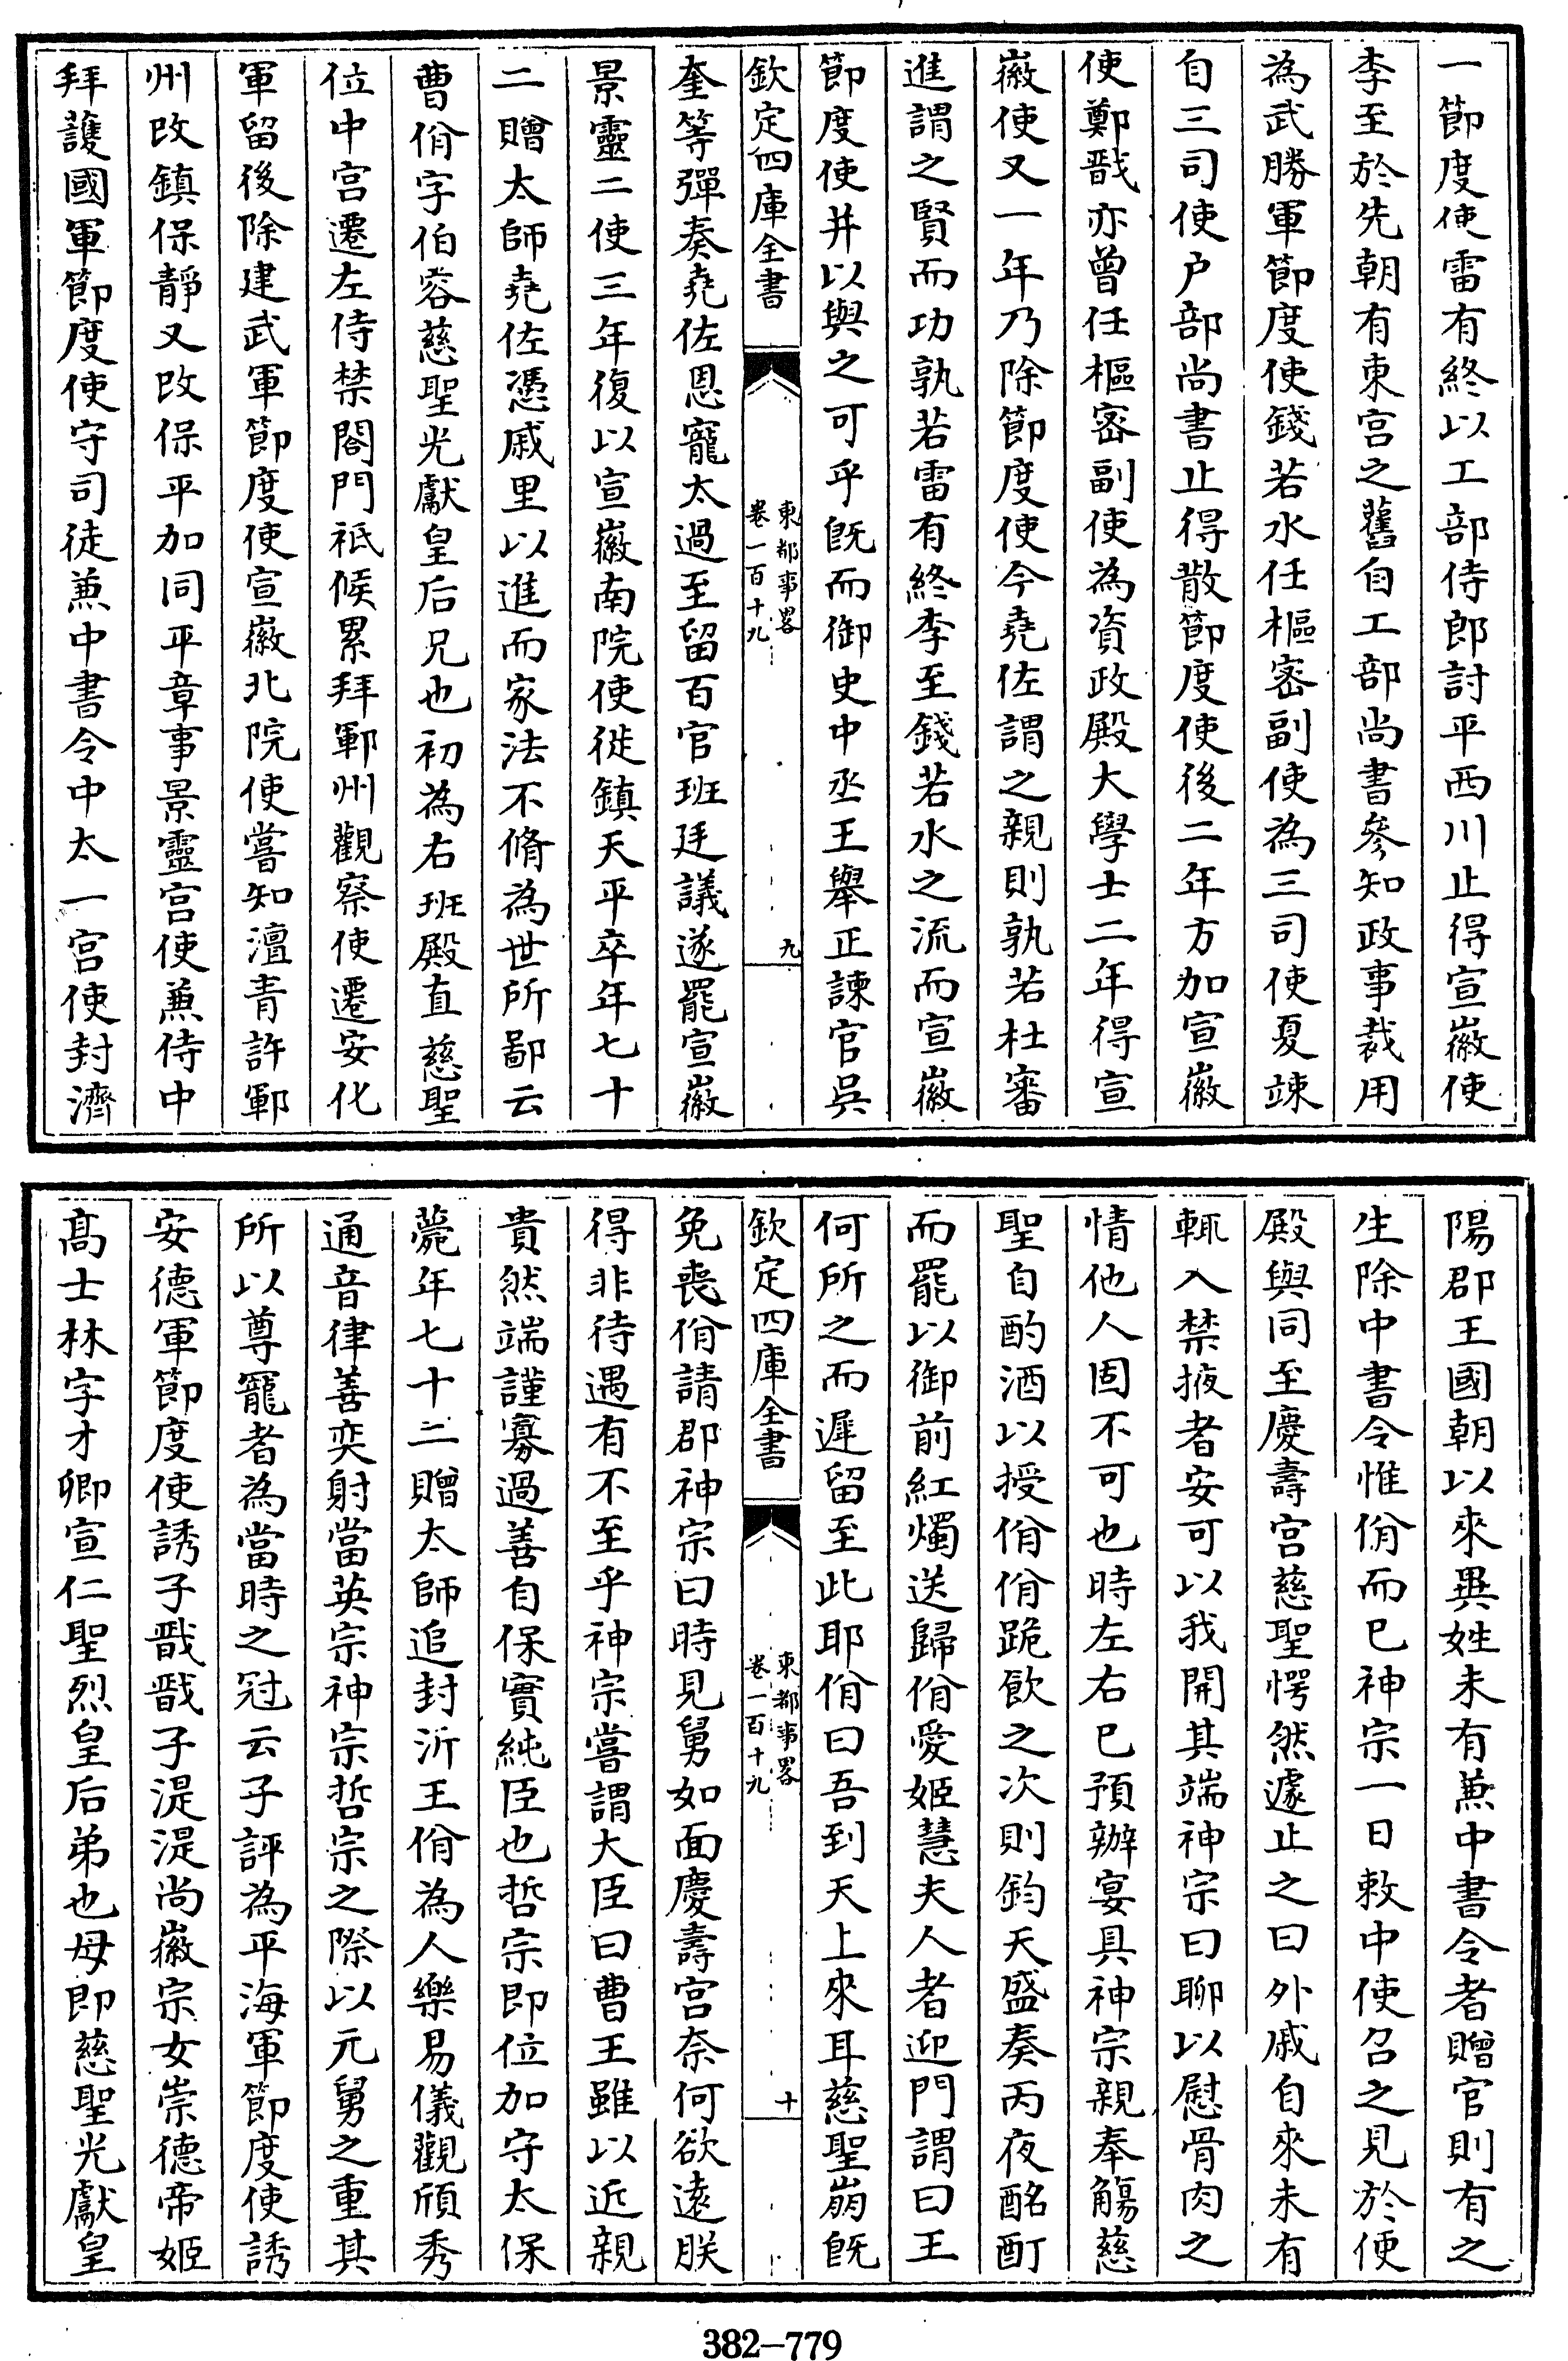 一節度使雷有終以工部侍郎討平西川止得宣徽使
李至於先朝有東宫之舊自工部尚書參知政事裁用
為武勝軍節度使錢若水任樞密副使為三司使夏竦
自三司使户部尚書止得散節度使後二年方加宣徽
使鄭戩亦曾任樞密副使為資政殿大學士二年得宣
徽使又一年乃除節度使今堯佐謂之親則孰若杜審
進謂之賢而功孰若雷有終李至錢若水之流而宣徽
節度使并以與之可乎既而御史中丞王舉正諫官吳
欽定四庫全書
東都事畧
卷一百十九
九
奎等彈奏堯佐恩寵太過至留百官班廷議遂罷宣徽
景靈二使三年復以宣徽南院使徙鎮天平卒年七十
二贈太師堯佐憑戚里以進而家法不脩為世所鄙云
曹佾字伯容慈聖光獻皇后兄也初為右班殿直慈聖
位中宫遷左侍禁閤門祗候累拜鄆州觀察使遷安化
軍留後除建武軍節度使宣徽北院使嘗知澶青許鄆
州改鎮保靜又改保平加同平章事景靈宫使兼侍中
拜護國軍節度使守司徒兼中書令中太一宫使封濟
陽郡王國朝以來異姓未有兼中書令者贈官則有之
生除中書令惟佾而已神宗一日敕中使召之見於便
殿與同至慶壽宫慈聖愕然遽止之曰外戚自來未有
輒入禁掖者安可以我開其端神宗曰聊以慰骨肉之
情他人固不可也時左右已預辦宴具神宗親奉觴慈
聖自酌酒以授佾佾跪飲之次則鈞天盛奏丙夜酩酊
而罷以御前紅燭送歸佾愛姬慧夫人者迎門謂曰王
何所之而遲留至此耶佾曰吾到天上來耳慈聖崩既
欽定四庫全書
東都事畧
卷一百十九
十
免喪佾請郡神宗曰時見舅如面慶壽宫奈何欲遠朕
得非待遇有不至乎神宗嘗謂大臣曰曹王雖以近親
貴然端謹寡過善自保實純臣也哲宗即位加守太保
薨年七十二贈太師追封沂王佾為人樂易儀觀頎秀
通音律善奕射當英宗神宗哲宗之際以元舅之重其
所以尊寵者為當時之冠云子評為平海軍節度使誘
安德軍節度使誘子戩戩子湜湜尚徽宗女崇德帝姬
髙士林字才卿宣仁聖烈皇后弟也母即慈聖光獻皇
382–779